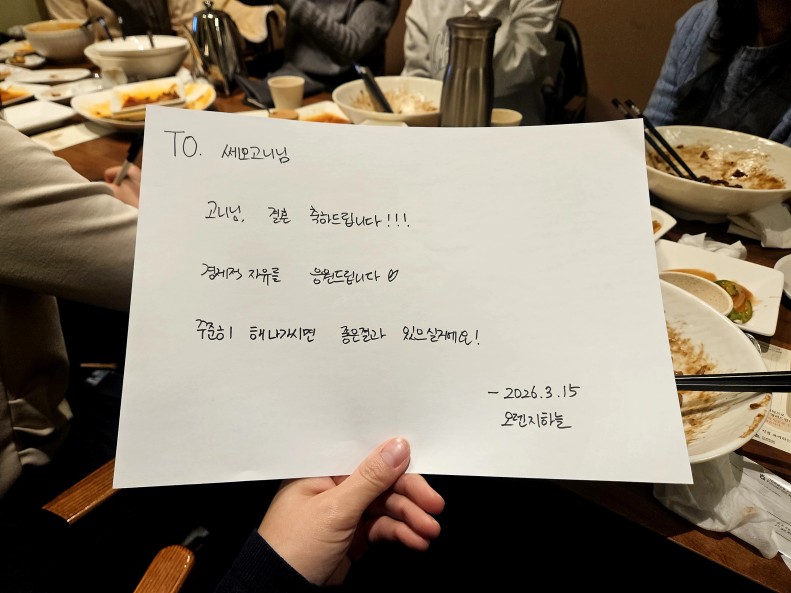 TO. 쎄모고니님
고니님, 결혼 축하드립니다!!!
경제적 자유를 응원드립니다♡
꾸준히 해나가시면 좋은결과 있으실거에요!
- 2026.3.15
오렌지하늘